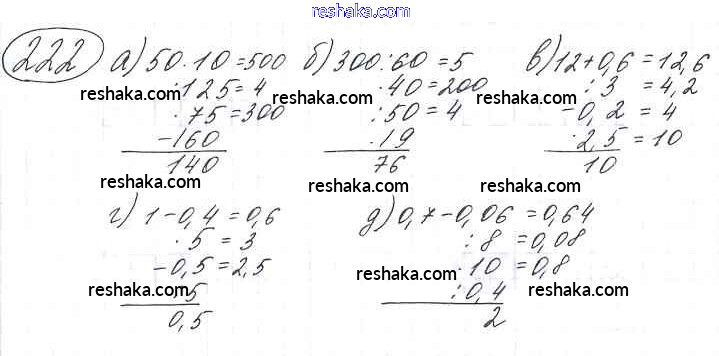 reshaka.com
222 а) 50·10=500 б) 300:60=5 в) 12+0,6=12,6
:125=4 ·40=200 :3=4,2
reshaka.com reshaka.com reshaka.com
·75=300 :50=4 -0,2=4
-160 ·19 ·2,5=10
140 76 10
reshaka.com reshaka.com reshaka.com
г) 1-0,4=0,6 д) 0,7-0,06=0,64
·5=3 :8=0,08
-0,5=2,5 ·10=0,8
reshaka.com reshaka.com reshaka.com
:5 :0,4
0,5 2